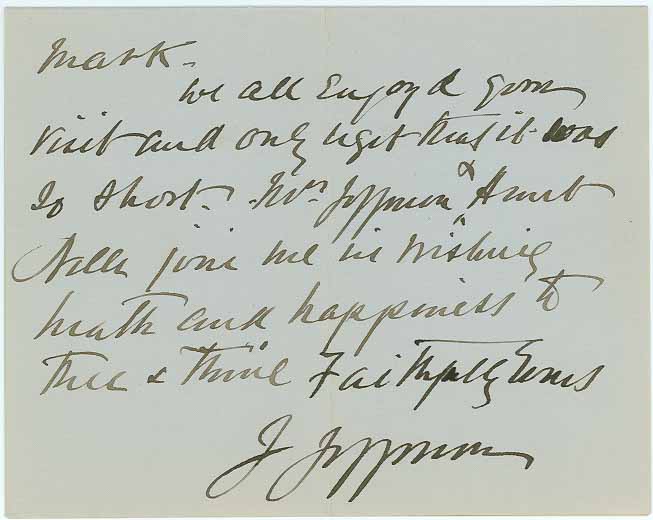 mark.
We all Enjoyd your
visit and only reget that it was
so short. Mrs Jefferson & Aunt
Nella join me in wishing
heath and happiness to
thee & thine Faithfully Yours
J Jefferson